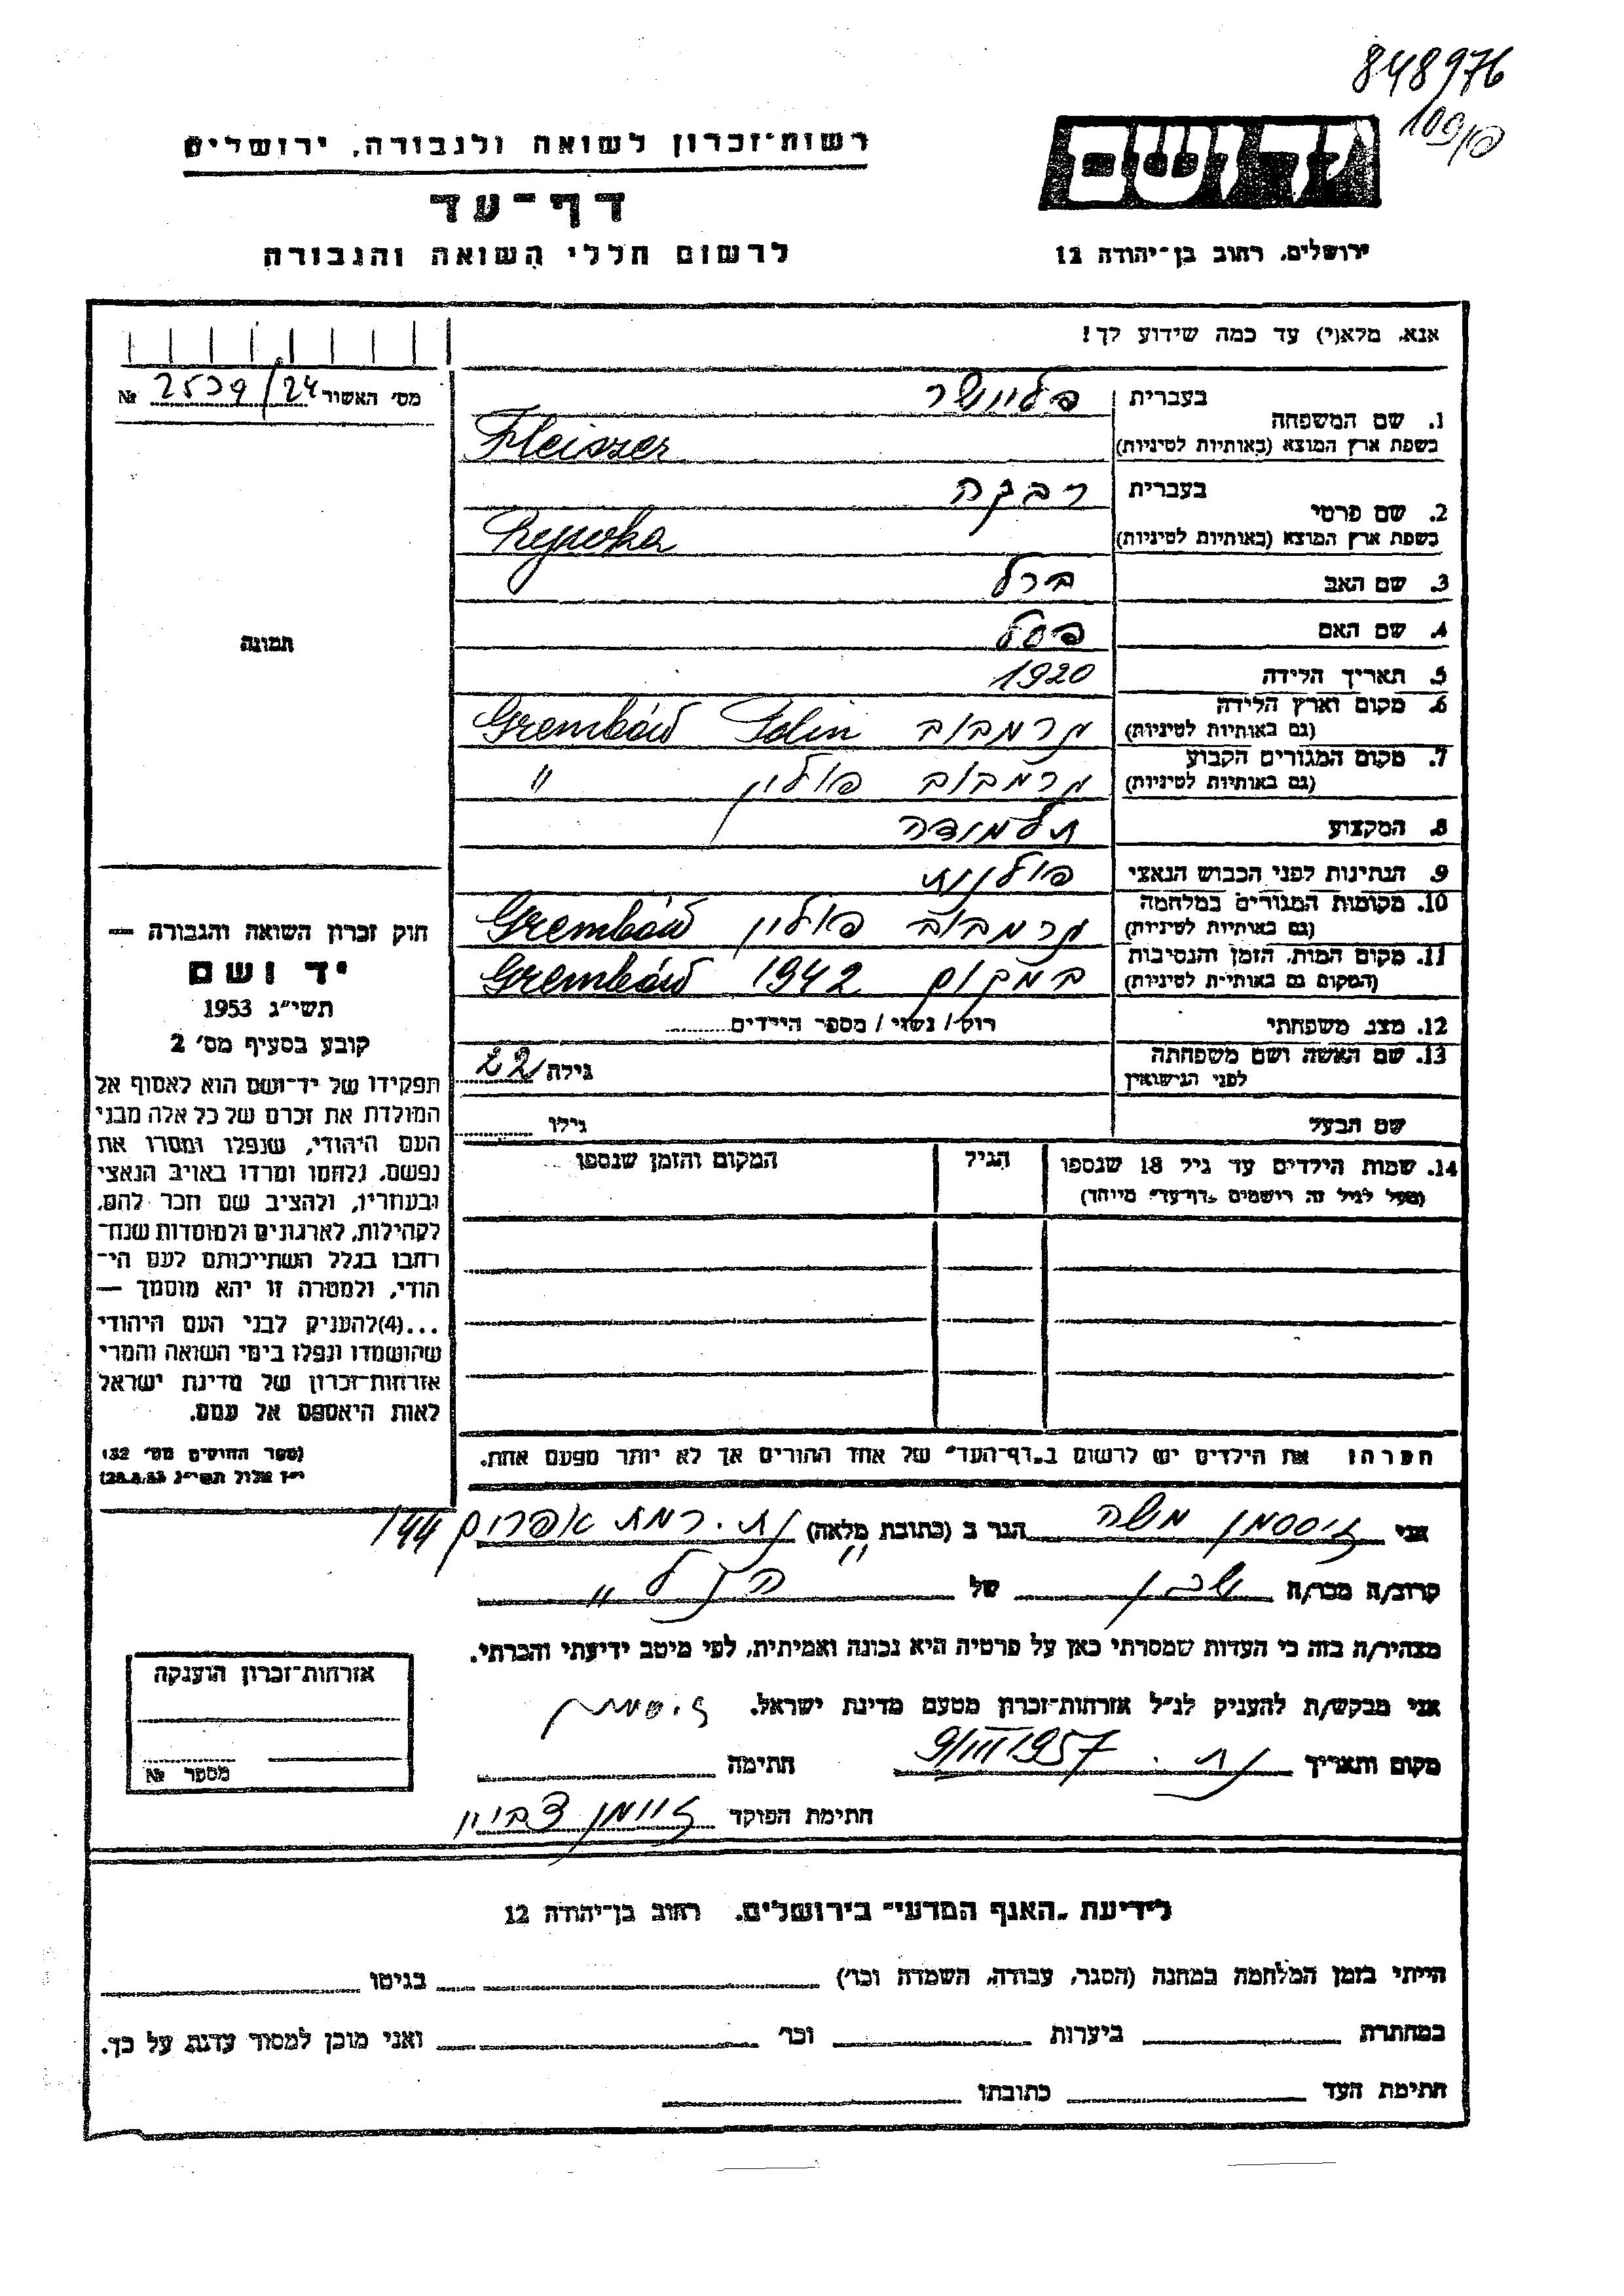 848976
רשות־זכרון לשואה ולגבורה, ירושלים
דף־עד
לרשום חללי השואה והגבורה
יד ושם
ירושלים, רחוב בן־יהודה 12
אנא, מלא(י) עד כמה שידוע לך!
מס׳ האשור 2539/24 №
1. שם המשפחה
בעברית פליישר
בשפת ארץ המוצא (באותיות לטיניות) Fleiszer
2. שם פרטי
בעברית רבקה
בשפת ארץ המוצא (באותיות לטיניות) Rywka
3. שם האב ברל
4. שם האם פסל
5. תאריך הלידה 1920
6. מקום וארץ הלידה
(גם באותיות לטיניות) Grembów Polin
7. מקום המגורים הקבוע
(גם באותיות לטיניות) פולין "
8. המקצוע תלמידה
9. הנתינות לפני הכבוש הנאצי פולנית
10. מקומות המגורים במלחמה
(גם באותיות לטיניות) פולין Grembów
11. מקום המות, הזמן והנסיבות
(המקום גם באותיות לטיניות) במקום 1942 Grembów
12. מצב משפחתי רוק / נשוי / מספר הילדים
13. שם האשה ושם משפחתה
לפני הנישואין גילה 22
שם הבעל גילו
14. שמות הילדים עד גיל 18 שנספו הגיל המקום והזמן שנספו
(מעל לגיל זה רושמים „דף־עד״ מיוחד)
תמונה
חוק זכרון השואה והגבורה —
יד ושם
תשי״ג 1953
קובע בסעיף מס׳ 2
תפקידו של יד־ושם הוא לאסוף אל
המולדת את זכרם של כל אלה מבני
העם היהודי, שנפלו ומסרו את
נפשם, נלחמו ומרדו באויב הנאצי
ובעוזריו, ולהציב שם וזכר להם,
לקהילות, לארגונים ולמוסדות שנח־
רבו בגלל השתייכותם לעם הי־
הודי, ולמטרה זו יהא מוסמך —
...(4)להעניק לבני העם היהודי
שהושמדו ונפלו בימי השואה והמרי
אזרחות־זכרון של מדינת ישראל
לאות היאספם אל עמם.
(ספר החוקים מס׳ 132
י״ז אלול תשי״ג 28.8.53)
הערה: את הילדים יש לרשום ב„דף־העד״ של אחד ההורים אך לא יותר מפעם אחת.
אני זיסמן משה הגר ב (כתובת מלאה) נת. רמת אפרים 144
קרוב/ה מכר/ה שכן של " הנ ל "
מצהיר/ה בזה כי העדות שמסרתי כאן על פרטיה היא נכונה ואמיתית, לפי מיטב ידיעתי והכרתי.
אני מבקש/ת להעניק לנ״ל אזרחות־זכרון מטעם מדינת ישראל. זיסמן
מקום ותאריך נת. 9/III 1957 חתימה
חתימת הפוקד
אזרחות־זכרון הוענקה
מספר №
לידיעת „האגף המדעי״ בירושלים, רחוב בן־יהודה 12
הייתי בזמן המלחמה במחנה (הסגר, עבודה, השמדה וכו׳) בגיטו
במחתרת ביערות וכו׳ ואני מוכן למסור עדות על כך.
חתימת העד כתובתו